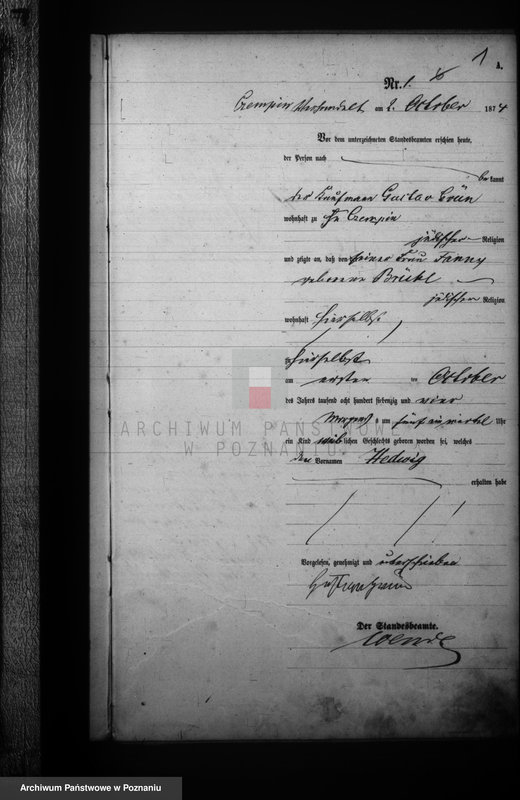 1
A.
Nr. 1.
Czempin am 2. October 1874
Vor dem unterzeichneten Standesbeamten erschien heute,
der Person nach
be kannt
der Kaufmann Gustav Grün
wohnhaft zu Czempin
jüdischer Religion
und zeigte an, daß von seiner Frau Fanny
geborene
jüdischer Religion
wohnhaft hierselbst
zu hierselbst
am ersten ten October
des Jahres tausend acht hundert siebenzig und vier
Morgens um fünf Uhr
ein Kind weiblichen Geschlechts geboren worden sei, welches
den Vornamen Hedwig
erhalten habe
Vorgelesen, genehmigt und unterschrieben
Gustav Grün
Der Standesbeamte.
ARCHIWUM PAŃSTWOWE
W POZNANIU
Archiwum Państwowe w Poznaniu